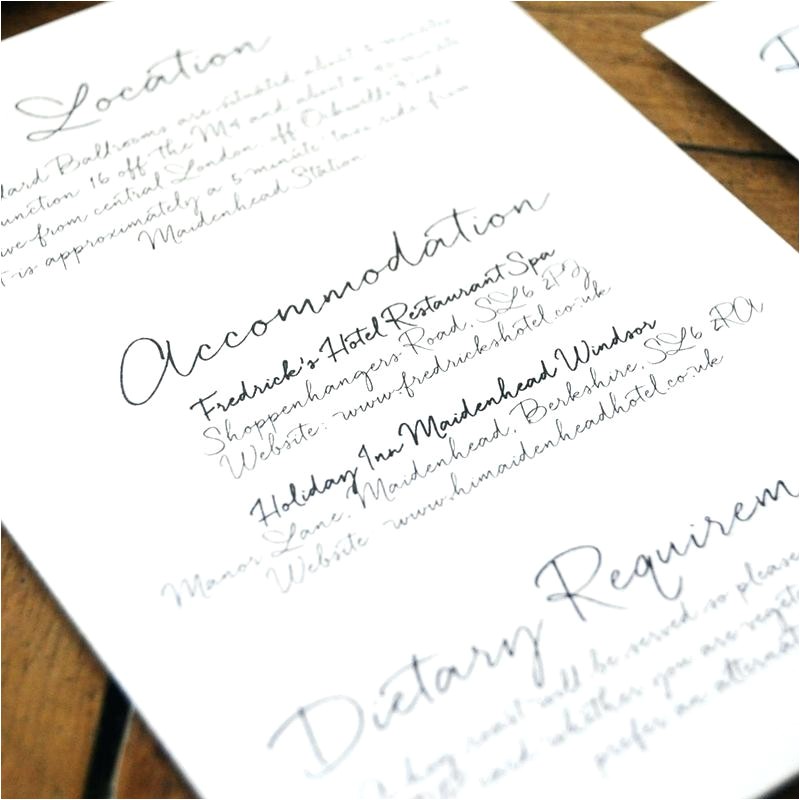 Location
Ballrooms are situated about 5 minutes
unction 16 off the M4 and about a
ve from central London, off Oakwells and
is approximately a 5 minute taxi ride from
Maidenhead Station
Accommodation
Fredrick's Hotel Restaurant Spa
Shoppenhangers Road, SL6 2PZ
Website: www.fredrickshotel.co.uk
Holiday Inn Maidenhead Windsor
Manor Lane, Maidenhead, Berkshire, SL6 2RA
Website www.himaidenheadhotel.co.uk
Dietary Requirem
hog roast will be served so please
card whether you are veget
prefer an alternat